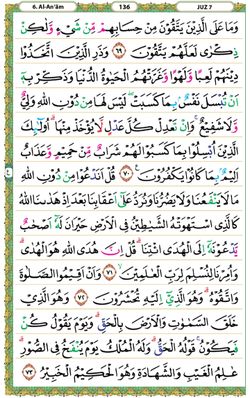 6. Al-An'ām 136 JUZ 7
وَمَا عَلَى الَّذِينَ يَتَّقُونَ مِنْ حِسَابِهِمْ مِنْ شَيْءٍ وَلَٰكِنْ
ذِكْرَىٰ لَعَلَّهُمْ يَتَّقُونَ ﴿٦٩﴾ وَذَرِ الَّذِينَ اتَّخَذُوا
دِينَهُمْ لَعِبًا وَلَهْوًا وَغَرَّتْهُمُ الْحَيَاةُ الدُّنْيَا وَذَكِّرْ بِهِ
أَنْ تُبْسَلَ نَفْسٌ بِمَا كَسَبَتْ لَيْسَ لَهَا مِنْ دُونِ اللَّهِ
وَلِيٌّ وَلَا شَفِيعٌ وَإِنْ تَعْدِلْ كُلَّ عَدْلٍ لَا يُؤْخَذْ مِنْهَا أُولَٰئِكَ
الَّذِينَ أُبْسِلُوا بِمَا كَسَبُوا لَهُمْ شَرَابٌ مِنْ حَمِيمٍ وَعَذَابٌ
أَلِيمٌ بِمَا كَانُوا يَكْفُرُونَ ﴿٧٠﴾ قُلْ أَنَدْعُو مِنْ دُونِ اللَّهِ
مَا لَا يَنْفَعُنَا وَلَا يَضُرُّنَا وَنُرَدُّ عَلَىٰ أَعْقَابِنَا بَعْدَ إِذْ هَدَانَا اللَّهُ
كَالَّذِي اسْتَهْوَتْهُ الشَّيَاطِينُ فِي الْأَرْضِ حَيْرَانَ لَهُ أَصْحَابٌ
يَدْعُونَهُ إِلَى الْهُدَى ائْتِنَا قُلْ إِنَّ هُدَى اللَّهِ هُوَ الْهُدَىٰ
وَأُمِرْنَا لِنُسْلِمَ لِرَبِّ الْعَالَمِينَ ﴿٧١﴾ وَأَنْ أَقِيمُوا الصَّلَاةَ
وَاتَّقُوهُ وَهُوَ الَّذِي إِلَيْهِ تُحْشَرُونَ ﴿٧٢﴾ وَهُوَ الَّذِي
خَلَقَ السَّمَاوَاتِ وَالْأَرْضَ بِالْحَقِّ وَيَوْمَ يَقُولُ كُنْ
فَيَكُونُ قَوْلُهُ الْحَقُّ وَلَهُ الْمُلْكُ يَوْمَ يُنْفَخُ فِي الصُّورِ
عَالِمُ الْغَيْبِ وَالشَّهَادَةِ وَهُوَ الْحَكِيمُ الْخَبِيرُ ﴿٧٣﴾